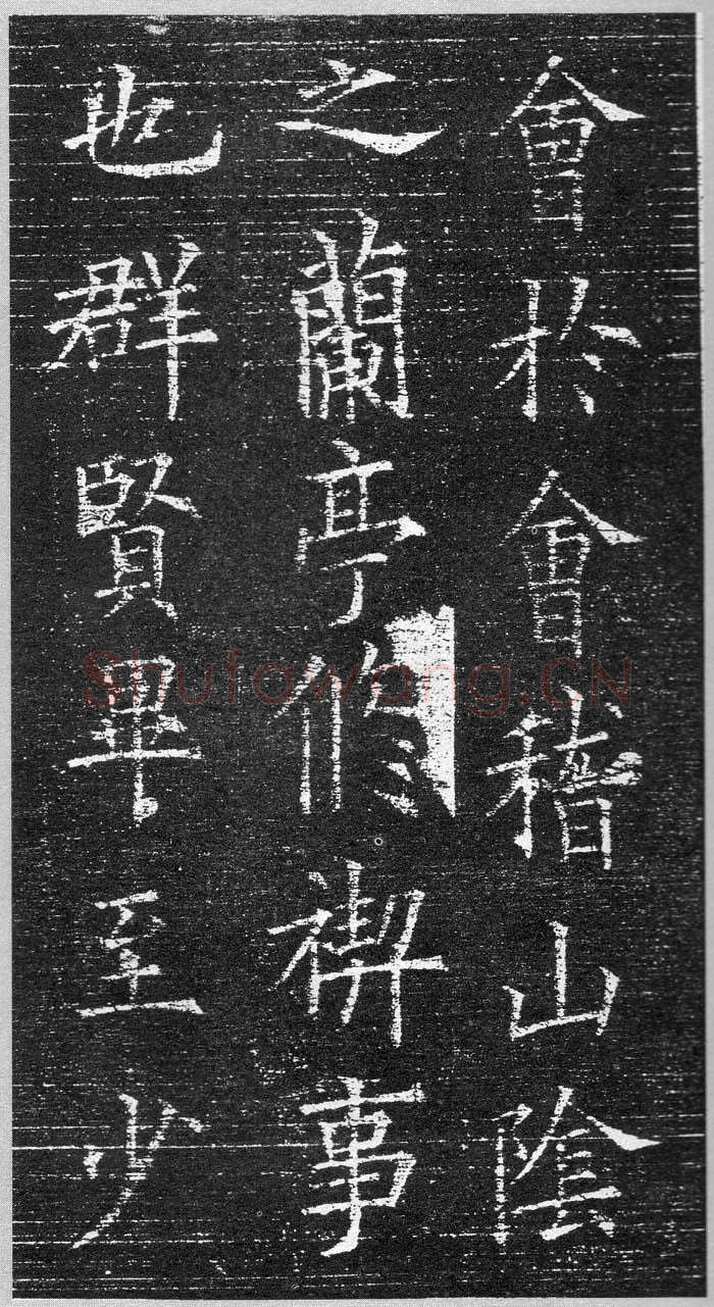 會於會稽山陰
之蘭亭修禊事
也群賢畢至少
Shufawang.CN